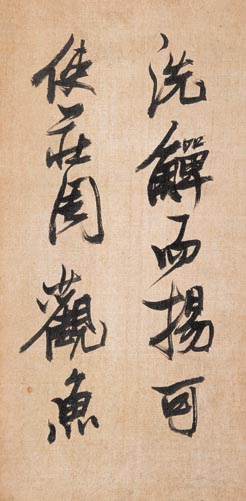 洗觶而揚可
使莊周觀魚